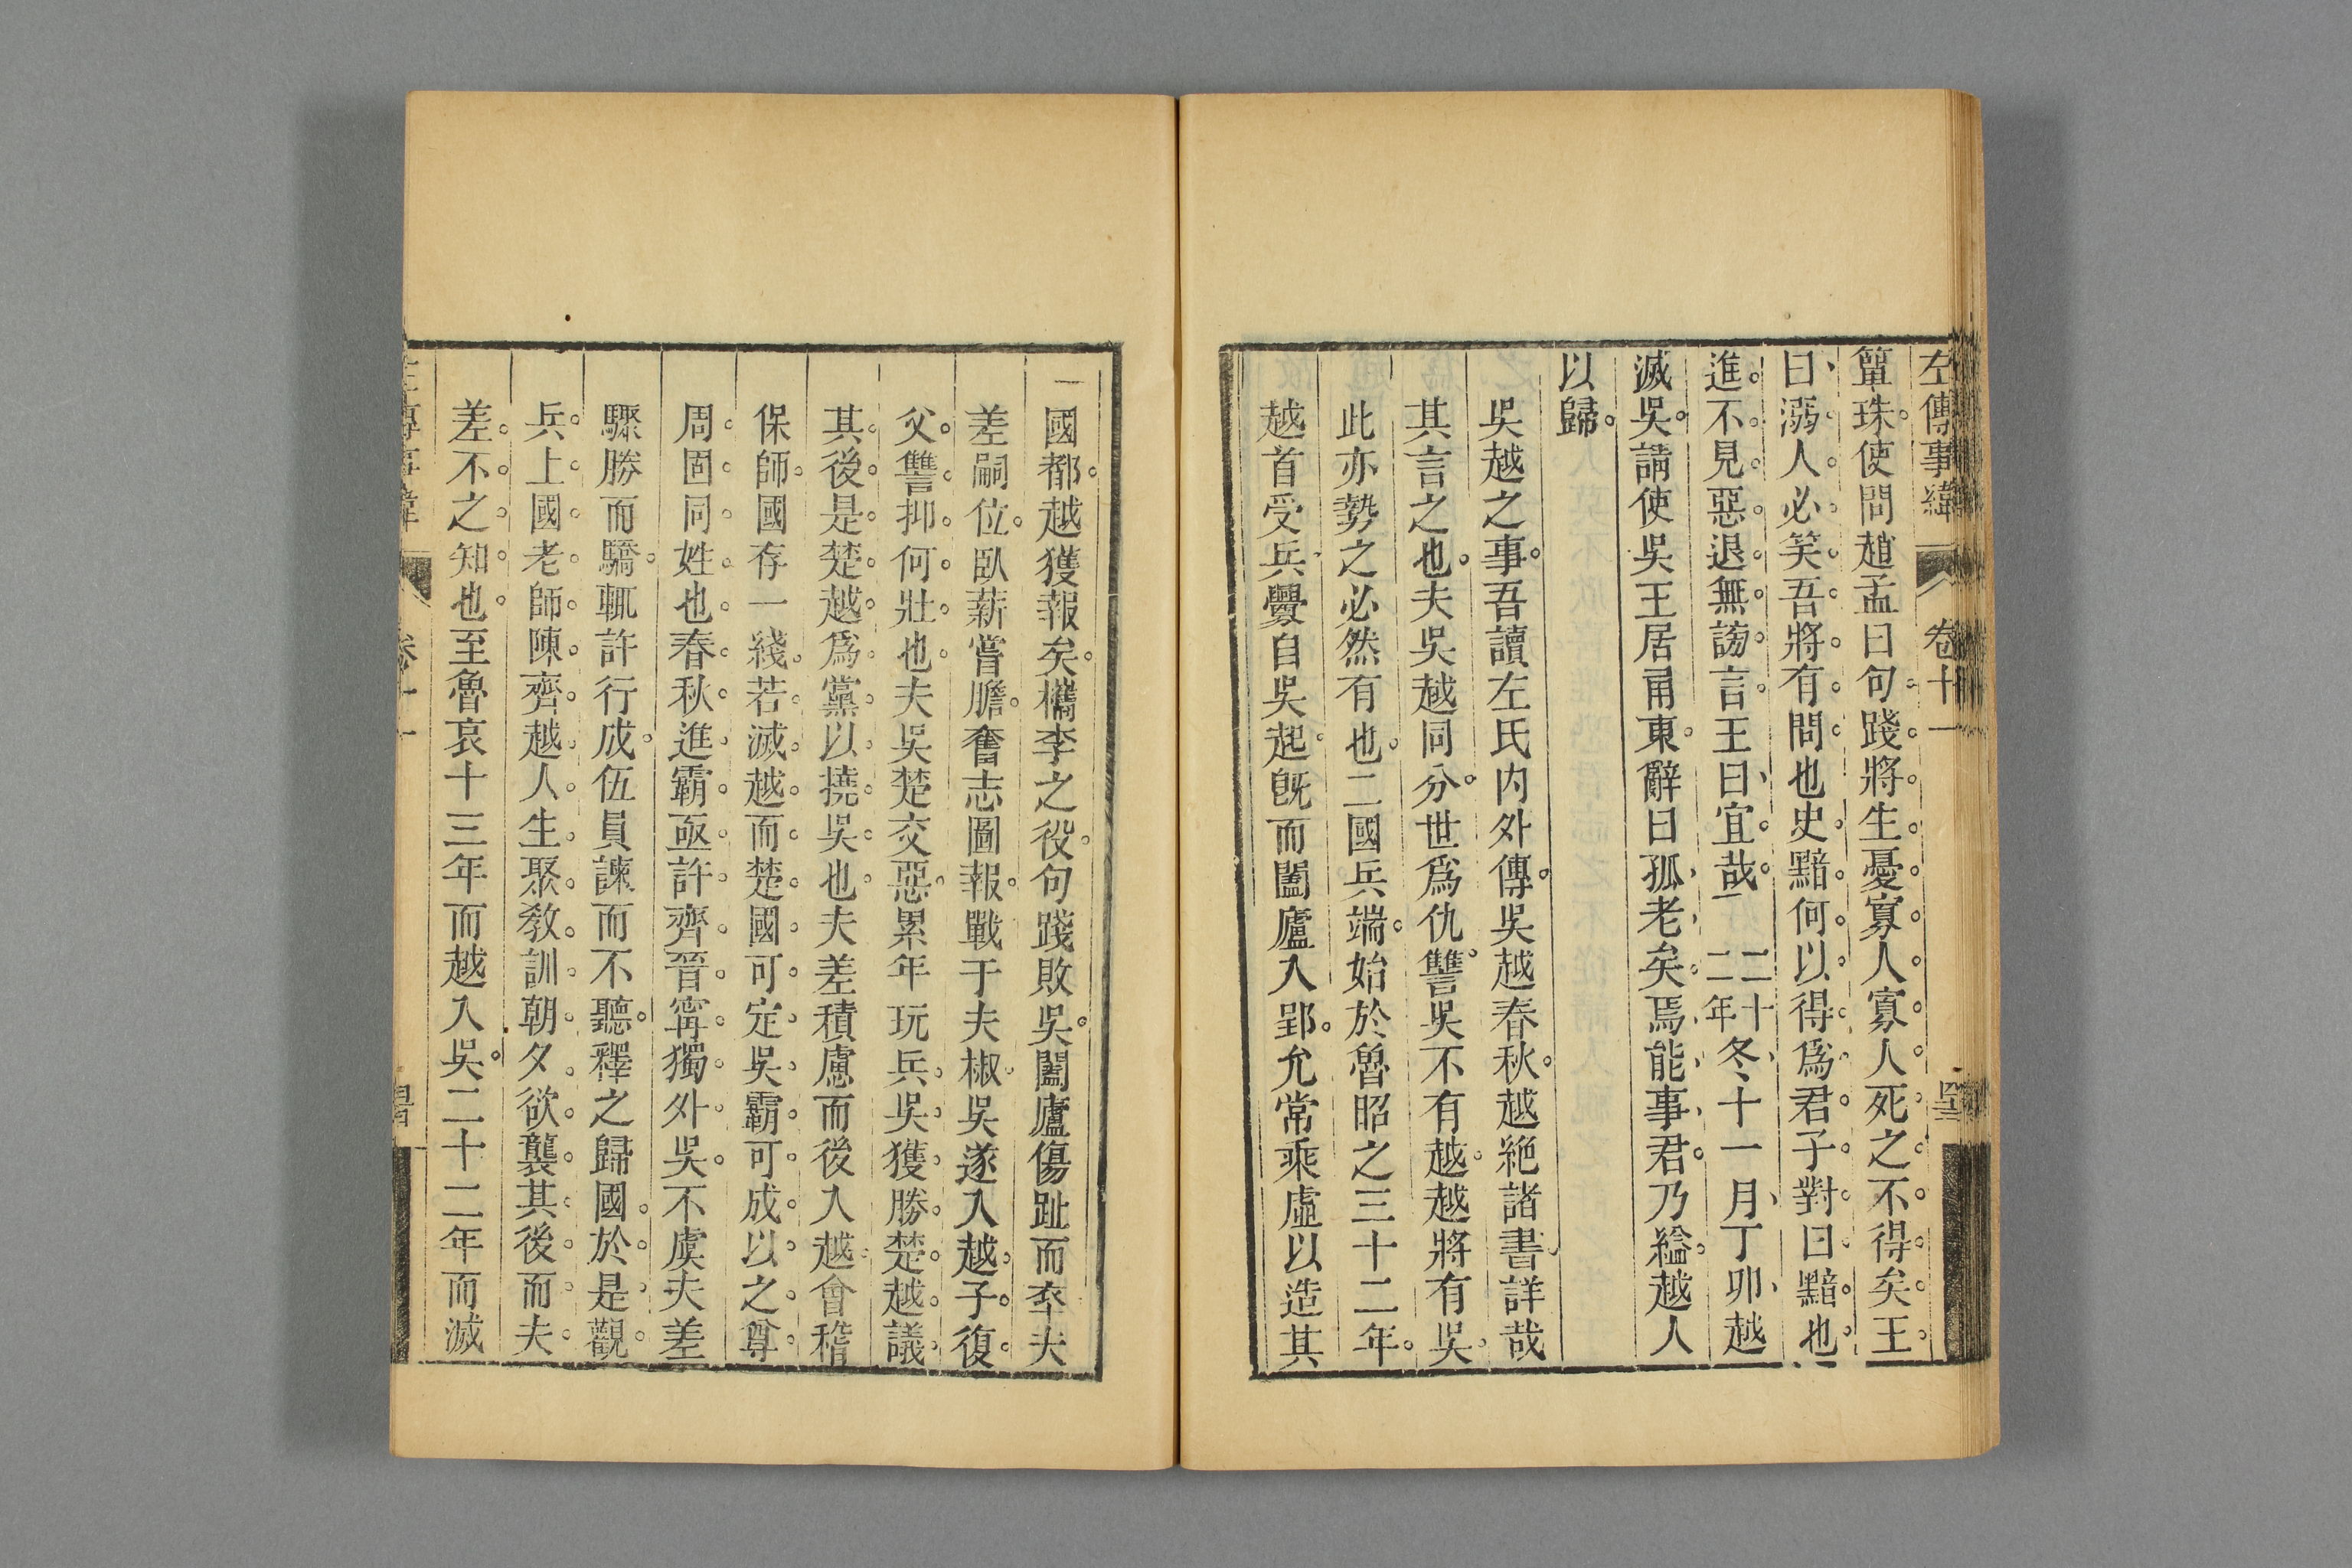 左傳事緯 卷十一
簞珠使問趙孟曰句踐將生憂寡人寡人死之不得矣王
曰溺人必笑吾將有問也史黯何以得爲君子對曰黯也
進不見惡退無謗言王曰宜哉 二十二年冬十一月丁卯越
滅吳請使吳王居甬東辭曰孤老矣焉能事君乃縊越人
以歸
吳越之事吾讀左氏内外傳吳越春秋越絶諸書詳哉
其言之也夫吳越同分世爲仇讐吳不有越越將有吳
此亦勢之必然有也二國兵端始於魯昭之三十二年
越首受兵釁自吳起旣而闔廬入郢允常乘虛以造其
國都越獲報矣檇李之役句踐敗吳闔廬傷趾而卒夫
差嗣位臥薪嘗膽奮志圖報戰于夫椒吳遂入越子復
父讐抑何壯也夫吳楚交惡累年玩兵吳獲勝楚越議
其後是楚越爲黨以撓吳也夫差積慮而後入越會稽
保師國存一綫若滅越而楚國可定吳霸可成以之尊
周固同姓也春秋進霸亟許齊晉寧獨外吳不虞夫差
驟勝而驕輒許行成伍員諫而不聽釋之歸國於是觀
兵上國老師陳齊越人生聚教訓朝夕欲襲其後而夫
差不之知也至魯哀十三年而越入吳二十二年而滅